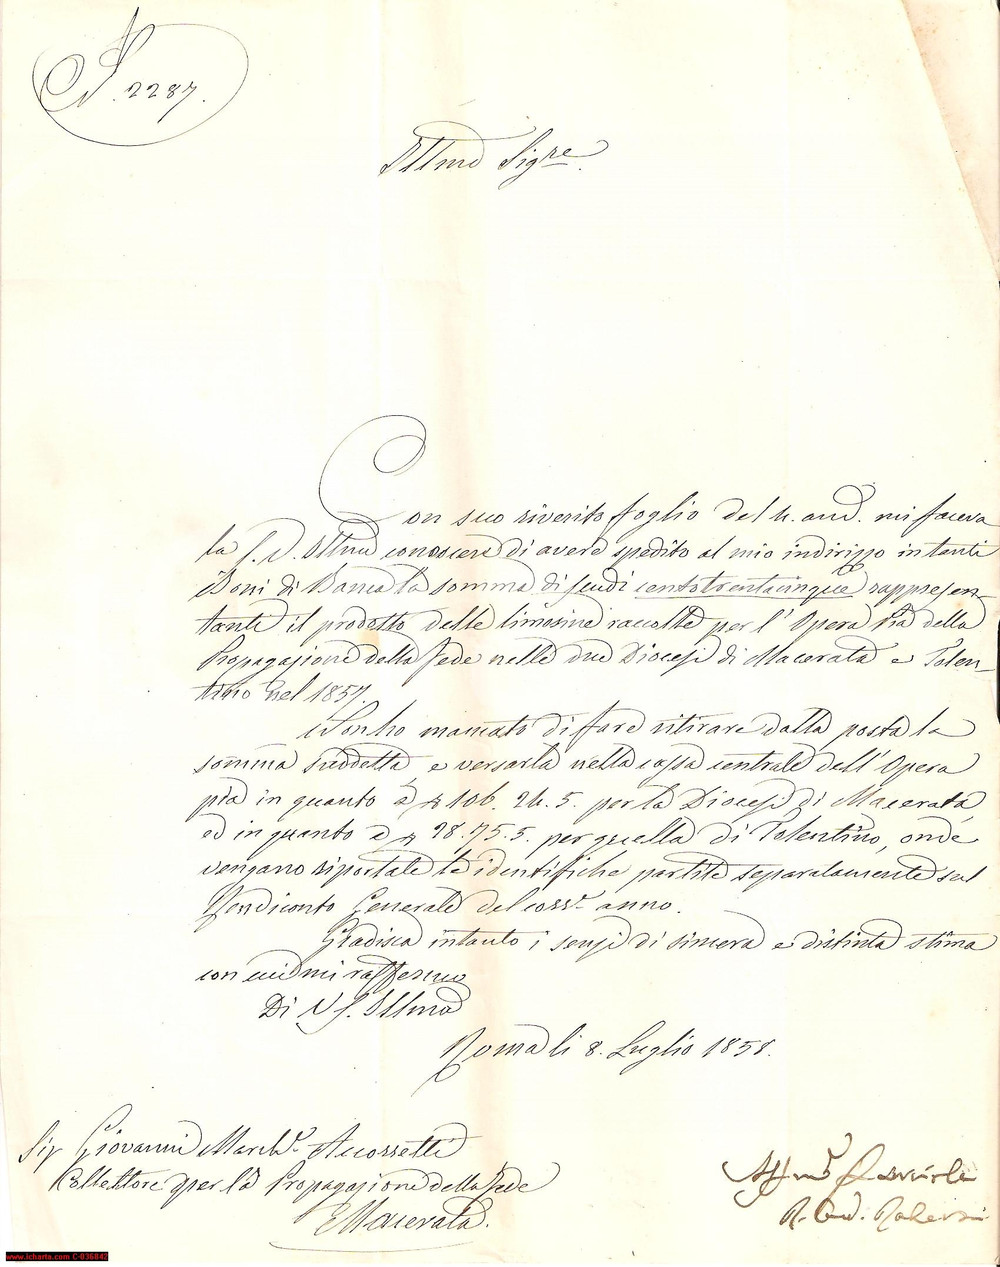 N. 2287.
Illmo Sigre.
Con suo riverito foglio del 4. and. mi faceva
la S. V. Illma conoscere di avere spedito al mio indirizzo in tanti
Boni di Banca la somma di Scudi centotrentacinque rappresen-
tante il prodotto delle limosine raccolte per l'Opera Pia della
Propagazione della Fede nelle due Diocesi di Macerata e Tolen-
tino nel 1857.
Non ho mancato di fare ritirare dalla posta la
somma suddetta, e versarla nella cassa centrale dell'Opera
pia in quanto a 106. 24. 5. per la Diocesi di Macerata,
ed in quanto a 28. 75. 5. per quella di Tolentino, onde
vengano riportate le identifiche partite separatamente sul
Rendiconto Generale del corrte. anno.
Gradisca intanto i sensi di sincera e distinta stima
con cui mi raffermo
Di V. S. Illma
Roma li 8. Luglio 1858.
Sig Giovanni March. Accorretti
Collettore per la Propagazione della Fede
Macerata.
Affmo
www.icharta.com C-036842